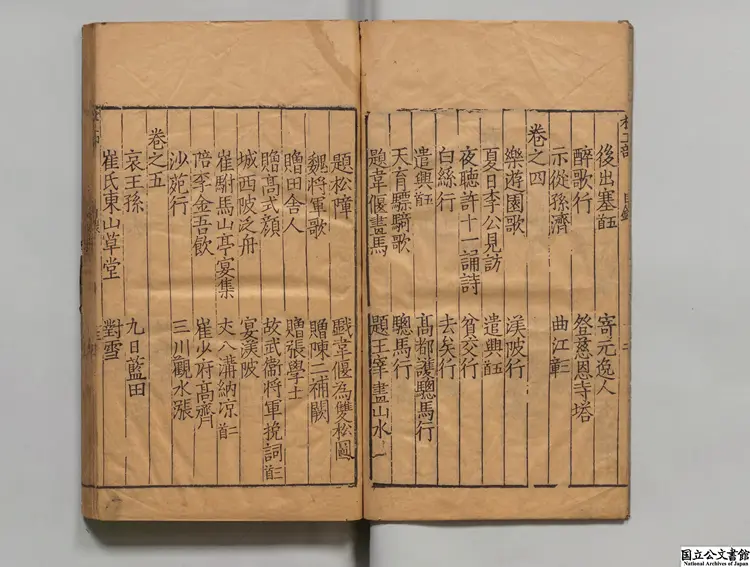 後出塞五首 寄元逸人
醉歌行 登慈恩寺塔
示從孫濟 曲江三章
卷之四
樂遊園歌 渼陂行
夏日李公見訪 遣興五首
夜聽許十一誦詩 貧交行
白絲行 去矣行
遣興五首 高都護驄馬行
天育驃騎歌 驄馬行
題韋偃畫馬 題王宰畫山水
題松障 戲韋偃為雙松圖
魏將軍歌 贈陳二補闕
贈田舍人 贈張學士
贈高式顔 故武衛將軍挽詞三首
城西陂之舟 宴渼陂
崔駙馬山亭宴集 丈八溝納凉二首
陪李金吾飲 崔少府高齊
沙苑行 三川觀水漲
卷之五
哀王孫 九日藍田
崔氏東山草堂 對雪
国立公文書館
National Archives of Japan